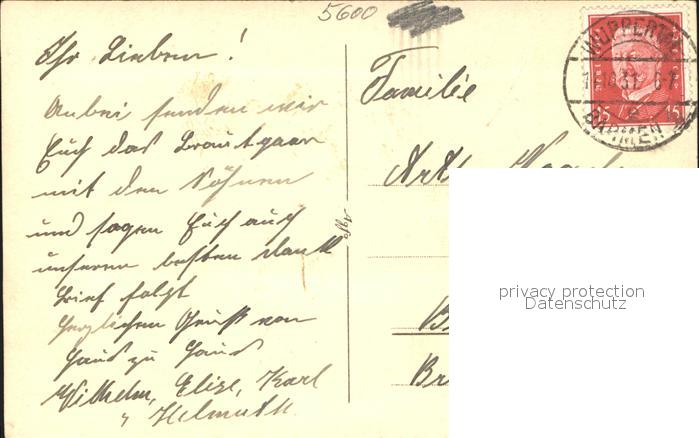 5600
Ihr Lieben!
Anbei senden wir
Euch das Brautpaar
mit den Söhnen
und sagen Euch auch
unseren besten Dank
Brief folgt
Herzlichen Gruß von
Haus zu Haus
Wilhelm, Elise, Karl
u Helmuth.
Familie
WUPPERTAL
31
BARMEN
15 15
privacy protection
Datenschutz